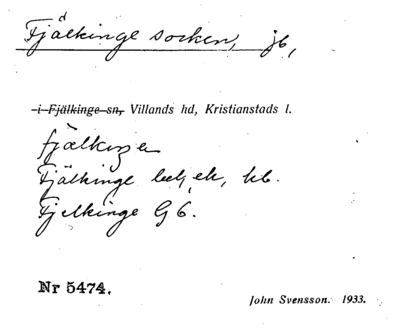 Fjälkinge socken, jb,
i Fjälkinge sn, Villands hd, Kristianstads l.
fjälkinge
Fjälkinge ek, kb.
Fjelkinge G 6.
Nr 5474.
John Svensson. 1933.